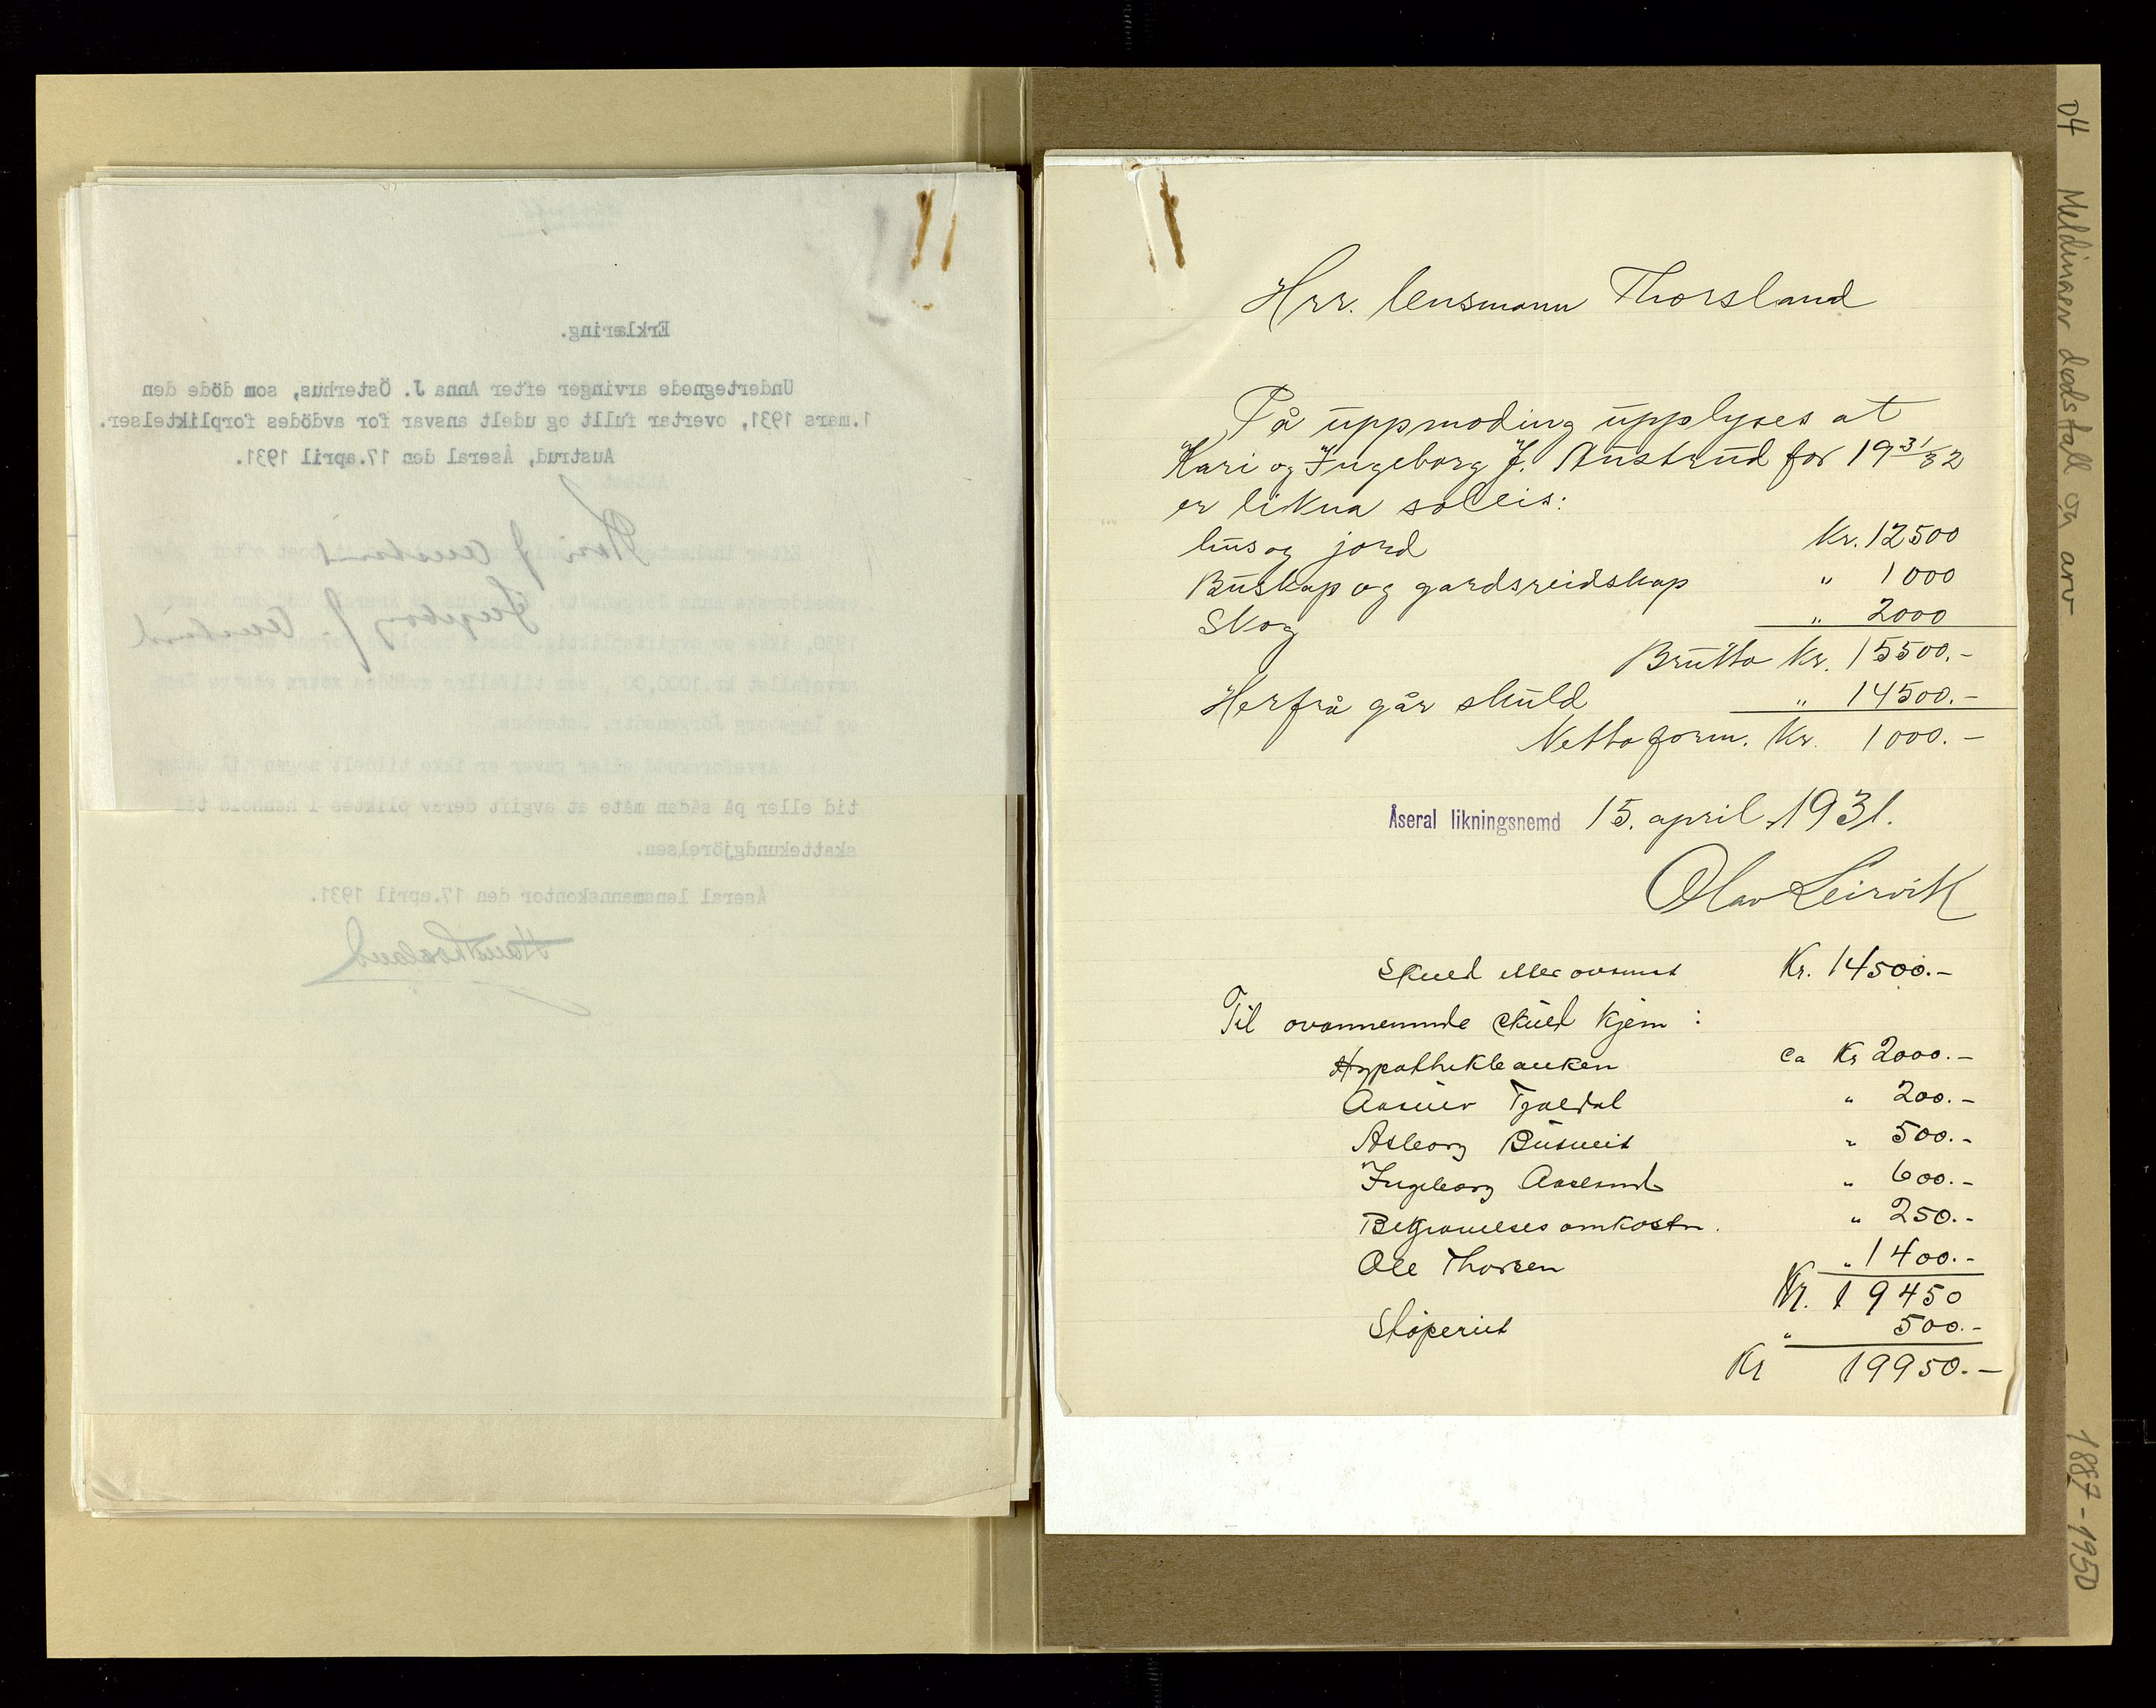 Erklæring.
Undertegnede arvinger efter Anna J. Österhus, som döde den
1.mars 1931, overtar fullt og udelt ansvar for avdödes forpliktelser.
Austrud, Åseral den 17.april 1931.
Kari J Austrud
Ingeborg J. Austrud
og Ingeborg Jörgensdtr. Österhus.
tid eller på sådan måte at avgift derav pliktes i henhold til
skattekundgjörelsen.
Åseral lensmannskontor den 17.april 1931.
Hans Thorsland
Hrr. lensmann Thorsland
På uppmoding upplyses at
Kari og Ingeborg J. Austrud for 1931/32
er likna soleis:
hus og jord Kr. 12500
Buskap og gardsreidskap " 1000
Skog " 2000
Brutto Kr. 15500.-
Herfrå går skuld " 14500.-
Nettoform. Kr. 1000.-
Åseral likningsnemd 15. april 1931.
Olav Leirvik
Skuld eller ovanust Kr. 14500.-
Til ovannemnde skuld kjem :
Hypothekbanken ca Kr 2000.-
Tjaldal " 200.-
Asborg " 500.-
Ingeborg " 600.-
Begravelsesomkostn. " 250.-
Ole Thorsen " 1400.-
Kr. 19450
" 500.-
Kr 19950.-
04 Meldinger dødsfall og arv 1887-1950